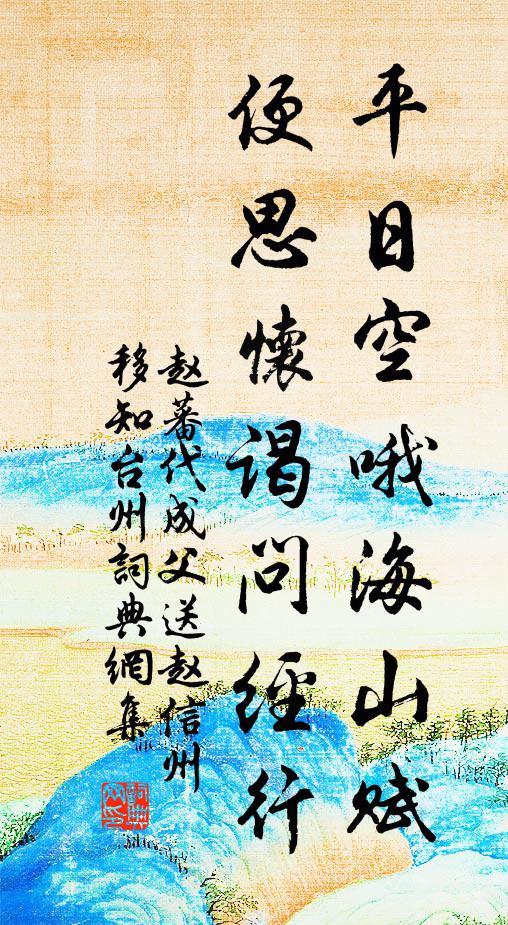 平日空哦海山賦
便思懷謁問經行
赵蕃代成父送赵信州
移知台州詞典網集